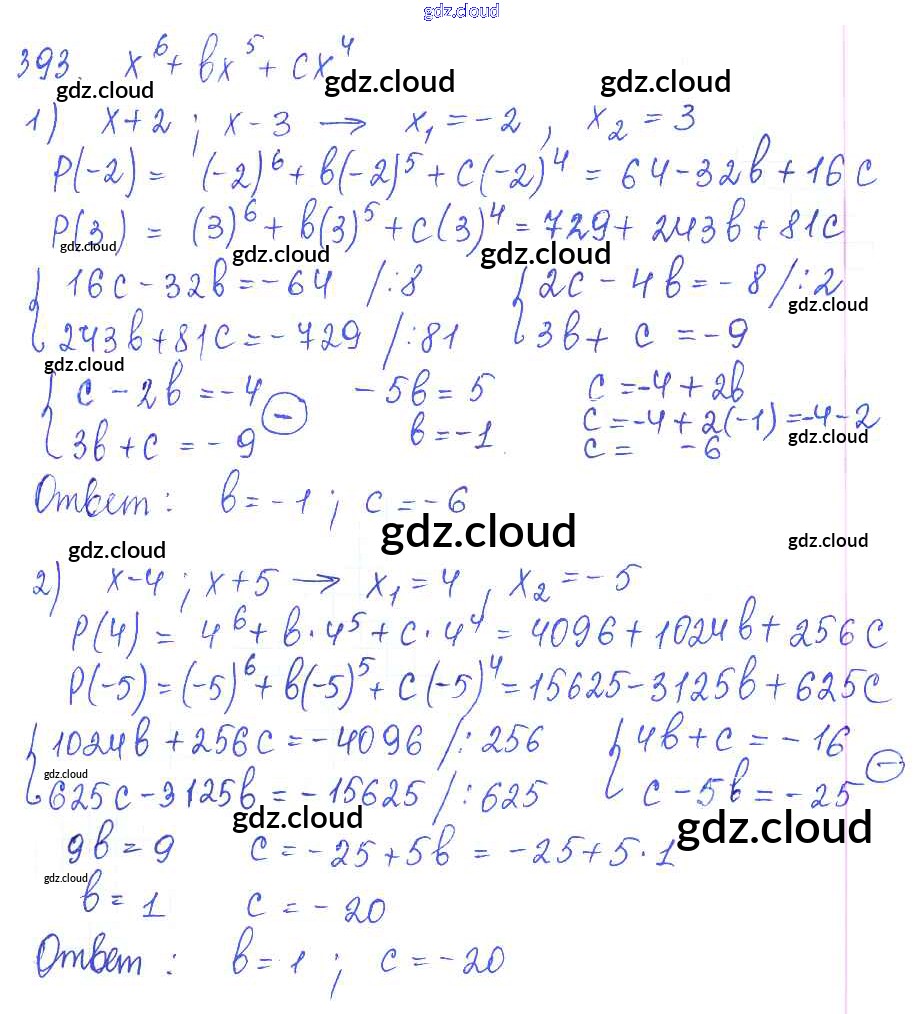 gdz.cloud
393. x⁶ + bx⁵ + cx⁴
gdz.cloud gdz.cloud gdz.cloud
1) x+2 ; x-3 → x₁ = -2 , x₂ = 3
P(-2) = (-2)⁶ + b(-2)⁵ + c(-2)⁴ = 64-32b + 16c
P(3) = (3)⁶ + b(3)⁵ + c(3)⁴ = 729 + 243b + 81c
gdz.cloud gdz.cloud gdz.cloud
{ 16c - 32b = -64 /:8 { 2c - 4b = -8 /:2
gdz.cloud
243b + 81c = -729 /:81 3b + c = -9
gdz.cloud
{ c - 2b = -4 (-) -5b = 5 c = -4 + 2b
3b + c = -9 b = -1 c = -4 + 2(-1) = -4 - 2
gdz.cloud
c = -6
Ответ: b = -1 ; c = -6
gdz.cloud gdz.cloud gdz.cloud
2) x-4 ; x+5 → x₁ = 4 , x₂ = -5
P(4) = 4⁶ + b·4⁵ + c·4⁴ = 4096 + 1024b + 256c
P(-5) = (-5)⁶ + b(-5)⁵ + c(-5)⁴ = 15625 - 3125b + 625c
{ 1024b + 256c = -4096 /:256 { 4b + c = -16 (-)
gdz.cloud
625c - 3125b = -15625 /:625 c - 5b = -25
gdz.cloud gdz.cloud
9b = 9 c = -25 + 5b = -25 + 5·1
gdz.cloud
b = 1 c = -20
Ответ: b = 1 ; c = -20